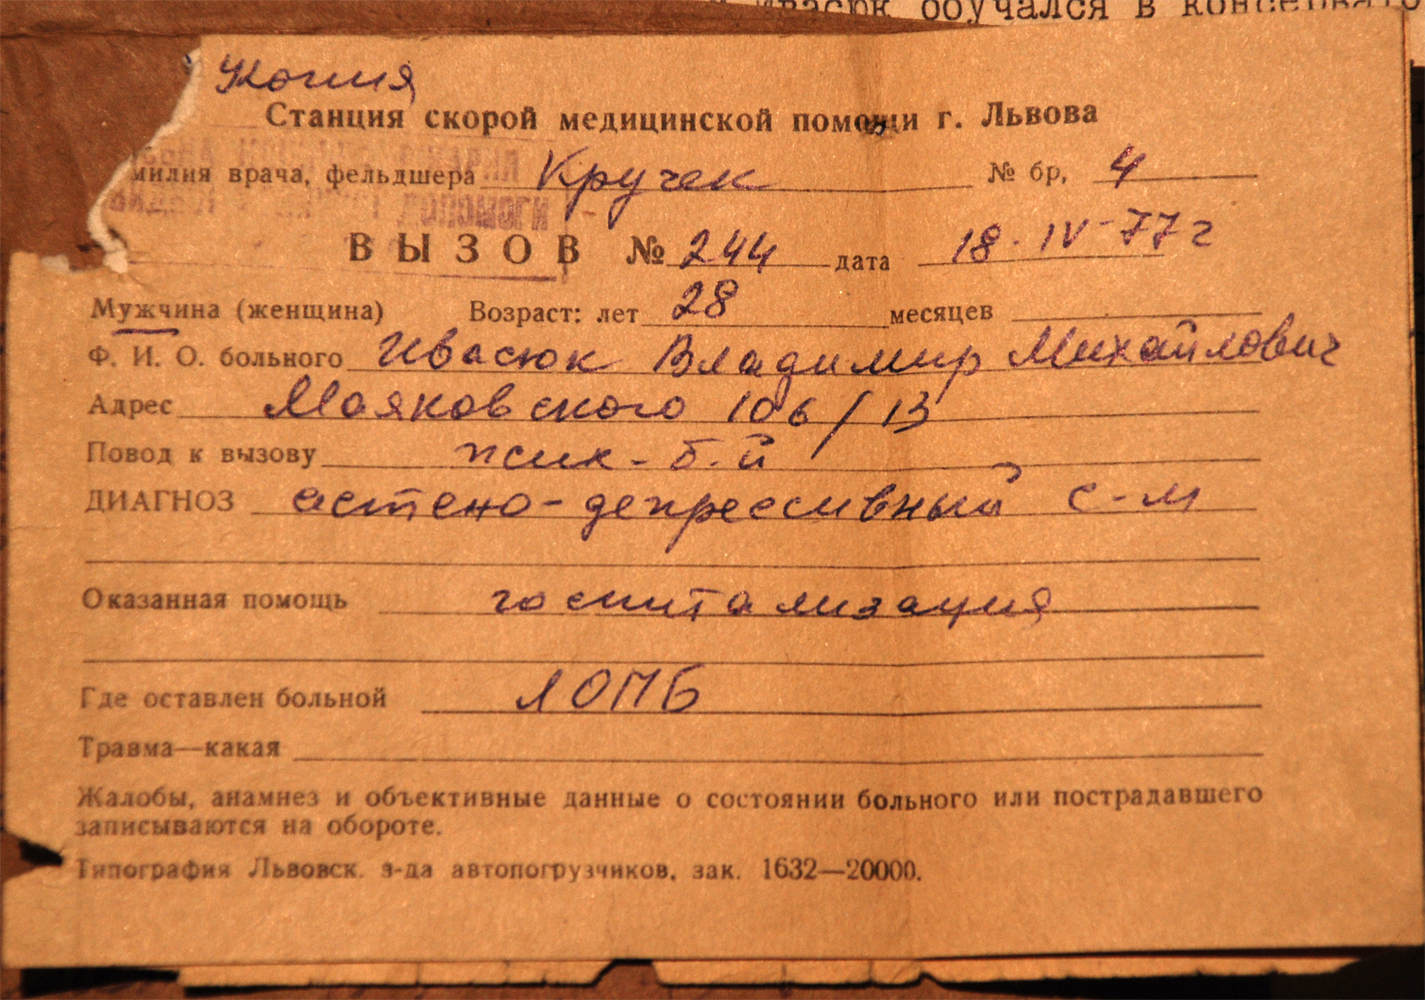 обучался в
Копия
Станция скорой медицинской помощи г. Львова
милия врача, фельдшера Кручек № бр, 4
ВЫЗОВ № 244 дата 18·IV-77 г
Мужчина (женщина) Возраст: лет 28 месяцев
Ф. И. О. больного Ивасюк Владимир Михайлович
Адрес Маяковского 106/13
Повод к вызову псих-б.й
ДИАГНОЗ астено-депрессивный с-м
Оказанная помощь госпитализация
Где оставлен больной ЛОПБ
Травма—какая
Жалобы, анамнез и объективные данные о состоянии больного или пострадавшего
записываются на обороте.
Типография Львовск. з-да автопогрузчиков, зак. 1632—20000.